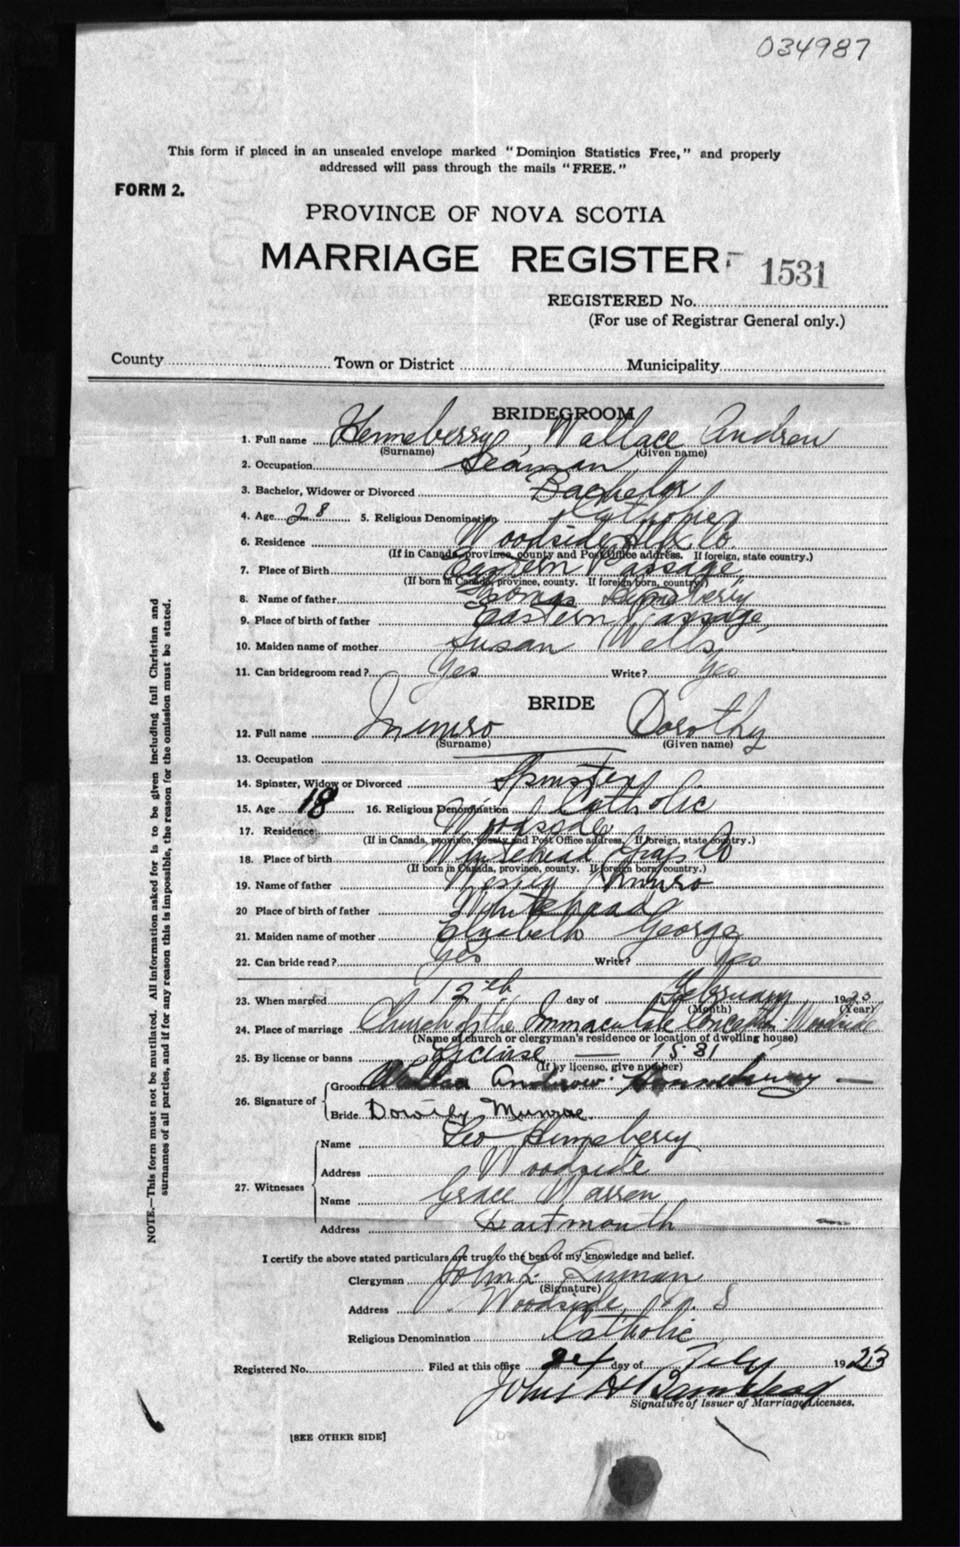 034987
This form if placed in an unsealed envelope marked "Dominion Statistics Free," and properly
addressed will pass through the mails "FREE."
FORM 2.
PROVINCE OF NOVA SCOTIA
MARRIAGE REGISTER
1531
REGISTERED No.
(For use of Registrar General only.)
County Town or District Municipality
BRIDEGROOM
1. Full name Henneberry, Wallace Andrew
(Surname) (Given name)
2. Occupation Seaman
3. Bachelor, Widower or Divorced Bachelor
4. Age 28 5. Religious Denomination Catholic
6. Residence Woodside Hfx. Co.
(If in Canada, province, county and Post Office address. If foreign, state country.)
7. Place of Birth Eastern Passage,
(If born in Canada, province, county. If foreign born, country)
8. Name of father Thomas Henneberry
9. Place of birth of father Eastern Passage,
10. Maiden name of mother Susan Wells
11. Can bridegroom read? Yes Write? Yes
BRIDE
12. Full name Munro Dorothy
(Surname) (Given name)
13. Occupation —
14. Spinster, Widow or Divorced Spinster
15. Age 18 16. Religious Denomination Catholic
17. Residence Woodside
(If in Canada, province, county and Post Office address. If foreign, state country.)
18. Place of birth Whitehead Guys Co
(If born in Canada, province, county. If foreign born, country.)
19. Name of father Wesley Munro
20 Place of birth of father Whitehead
21. Maiden name of mother Elizabeth George
22. Can bride read? Yes Write? Yes
23. When married 12th day of February 1923
(Month) (Year)
24. Place of marriage Church of the Immaculate Conception Woodside
(Name of church or clergyman's residence or location of dwelling house)
25. By license or banns License — 1531
(If by license, give number)
26. Signature of
Groom Wallace Andrew Henneberry —
Bride Dorothy Munroe.
27. Witnesses
Name Leo Henneberry
Address Woodside
Name Grace Warren
Address Dartmouth
I certify the above stated particulars are true to the best of my knowledge and belief.
Clergyman John L.
(Signature)
Address Woodside, N. S
Religious Denomination Catholic
Registered No. Filed at this office 24 day of Feby 1923
John H
Signature of Issuer of Marriage Licenses.
[SEE OTHER SIDE]
NOTE.—This form must not be mutilated. All information asked for is to be given including full Christian and
surnames of all parties, and if for any reason this is impossible, the reason for the omission must be stated.